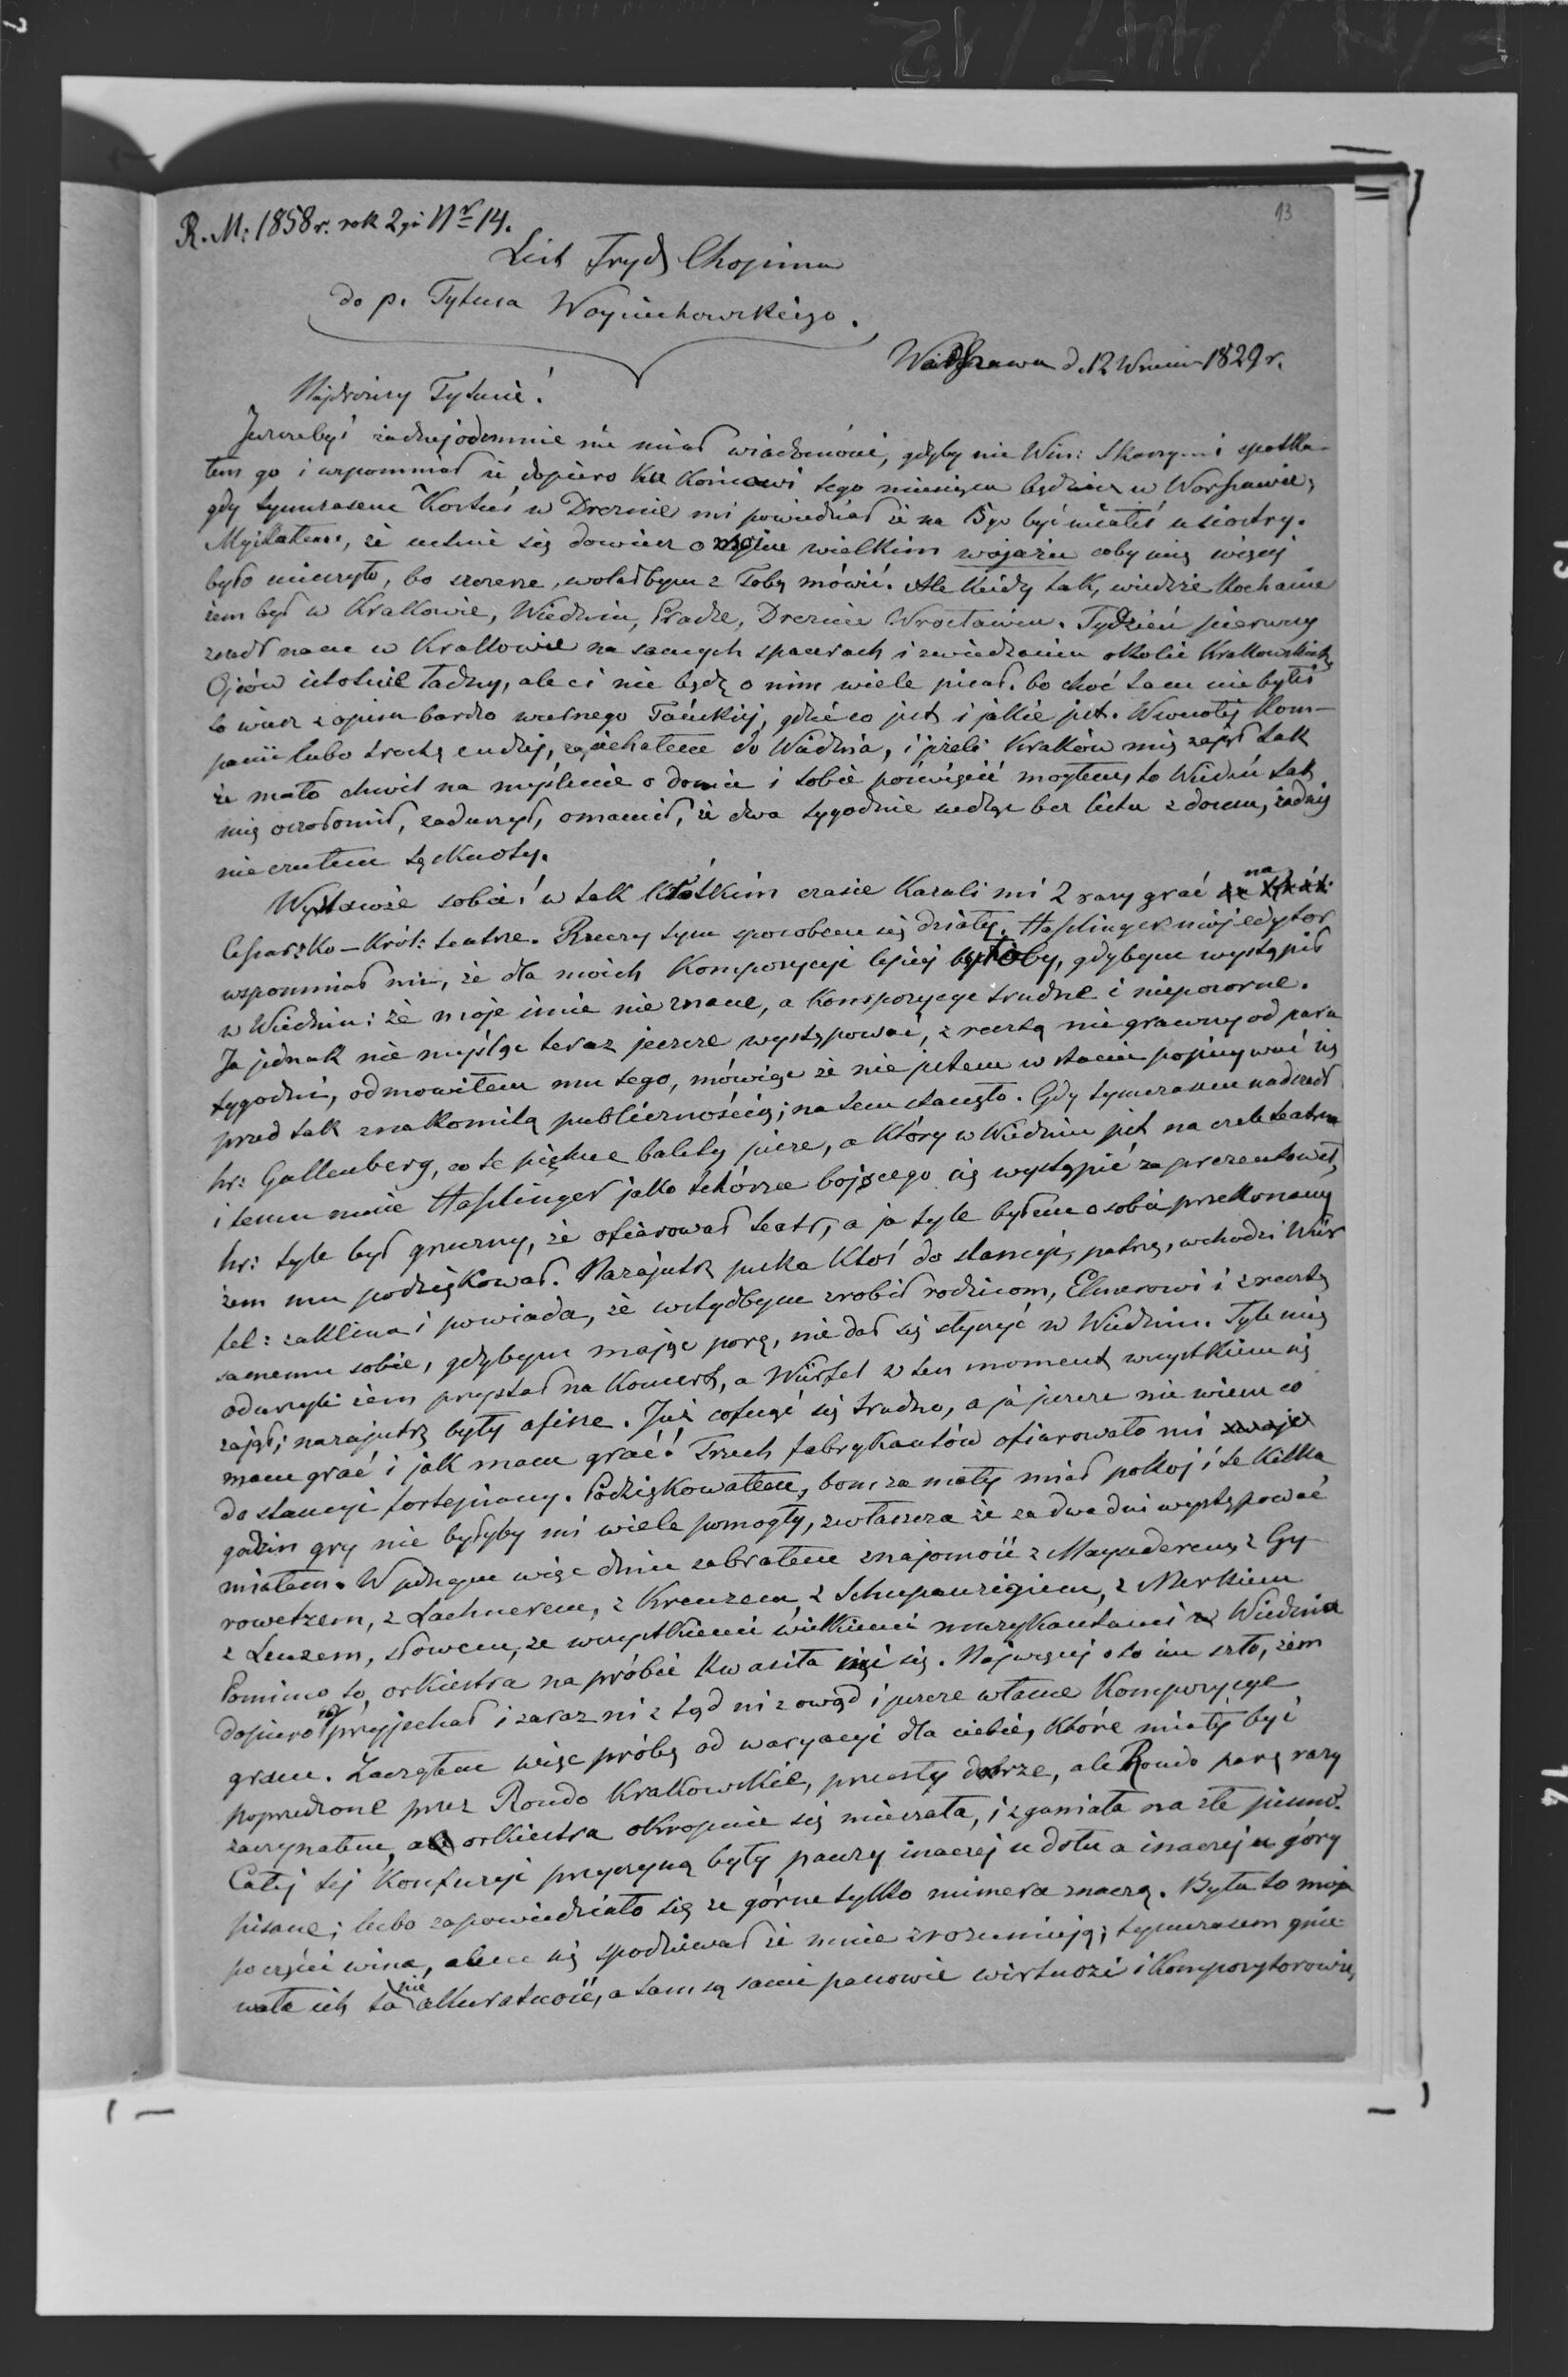 13
R. M: 1858 r. rok 2gi Nr 14.
List Fryd Chopina
do p. Tytusa Woyciechowskiego.
Warszawa d. 12 Wrześn 1829 r.
Najdroższy Tytusie!
Jeszczebyś żadnej odemnie nie miał wiadomości, gdyby nie Win: Skarzyn.. i spotka-
łem go i wspomniał że dopiero ku końcowi tego miesiąca będziesz w Warszawie,
gdy tymczasem Kostuś w Dreznie mi powiedział że na 15go być miałeś u siostry.
Myślałem, że ustnie się dowiesz o mojem wielkim wojażu coby mię więcej
było cieszyło, bo szczerze, wolałbym z Tobą mówić. Ale kiedy tak, wiedzże kochanie
żem był w Krakowie, Wiedniu, Pradze, Dreznie Wrocławiu. Tydzień pierwszy
zszedł nam w Krakowie na samych spacerach i zwiedzaniu okolic Krakowskich,
Ojców istotnie ładny, ale ci nie będę o nim wiele pisał. bo choć tam nie byłeś
to wiesz z opisu bardzo wiernego Tańskiej, gdzie co jest i jakie jest. W wesołej kom-
panii lubo trochę cudzej, zajechałem do Wiednia, i jżeli Kraków mię zajął tak
że mało chwil na myślenie o domu i tobie poświęcić mogłem, to Wiedeń tak
mię oczołomił, zadurzył, omamił, że dwa tygodnie siedząc bez listu z domu, żadnej
nie czułem tęsknoty.
Wystawże sobie! w tak krótkim czasie kazali mi 2 razy grać na
Cesarsko-Król: teatrze. Rzeczy tym sposobem się działy. Haslinger mój edytor
wspomniał mi, że dla moich kompozycji lepiej byłoby, gdybym wystąpił
w Wiedniu: że moje imie nie znane, a kompozycye trudne i niepozorne.
Ja jednak nie myśląc teraz jeszcze występować, z resztą nie grawszy od paru
tygodni, odmowiłem mu tego, mówiąc że nie jestem w stanie popisywać się
przed tak znakomitą publicznością; na tem stanęło. Gdy tymczasem nadszedł
hr: Gallenberg, co te piękne balety pisze, a który w Wiedniu jest na czele teatru
i temu mnie Haslinger jako tchórza bojącego się wystąpić zaprezentował,
hr: tyle był grzeczny, że ofiarował teatr, a ja tyle byłem o sobie przekonany
żem mu podziękował. Nazajutrz puka ktoś do stancyi, patrzę, wchodzi Wür
fel: zaklina i powiada, że wstydbym zrobił rodzicom, Elsnerowi i z resztą
samemu sobie, gdybym mając porę, nie dał się słyszyć w Wiedniu. Tyle mię
odurzyli żem przystał na koncert, a Würfel w ten moment wszystkiem się
zajął; nazajutrz były afisze. Już cofnąć się trudno, a ja jeszcze nie wiem co
mam grać i jak mam grać! Trzech fabrykantów ofiarowało mi swoje
do stancyi fortepiany. Podziękowałem, bom za mały miał pokoj i te kilka
godzin gry nie byłyby mi wiele pomogły, zwłaszcza że za dwa dni występować
miałem. W jednym więc dniu zabrałem znajomość z Mayzederem, z Gy-
rowetzem, z Lachnerem, z Kreuzem, z Schupanzigiem, z Merkiem
z Leuzem, słowem, ze wszystkiemi wielkiemi muzykantami w Wiedniu
Pomimo to, orkiestra na próbie kwasiła się. Najwięcej o to im szło, żem
dopiero co przyjechał i zaraz ni z tąd ni z owąd i jeszcze własne kompozycye
gram. Zacząłem więc próbę od waryacyi dla ciebie, które miały być
poprzedzone przez Rondo Krakowskie, przeszły dobrze, ale Rondo parę razy
zaczynałem, ale orkiestra okropnie się mieszała, i zganiała na złe pismo.
Całej tej konfuzyi przyczyną były pauzy inaczej u dołu a inaczej u góry
pisane; lubo zapowiedziało się że górne tylko numera znaczą. Była to moja
po części wina, alem się spodziewał że mnie zrozumieją; tymczasem gnie-
wała ich ta nieakuratność, a tam są sami panowie wirtuozi i kompozytorowie,